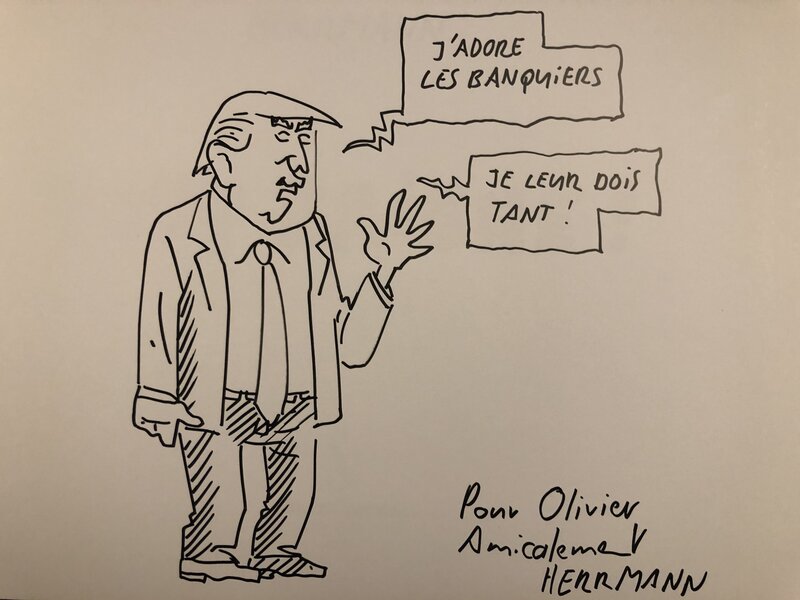 J'ADORE
LES BANQUIERS
JE LEUR DOIS
TANT !
Pour Olivier
Amicalement
HERRMANN